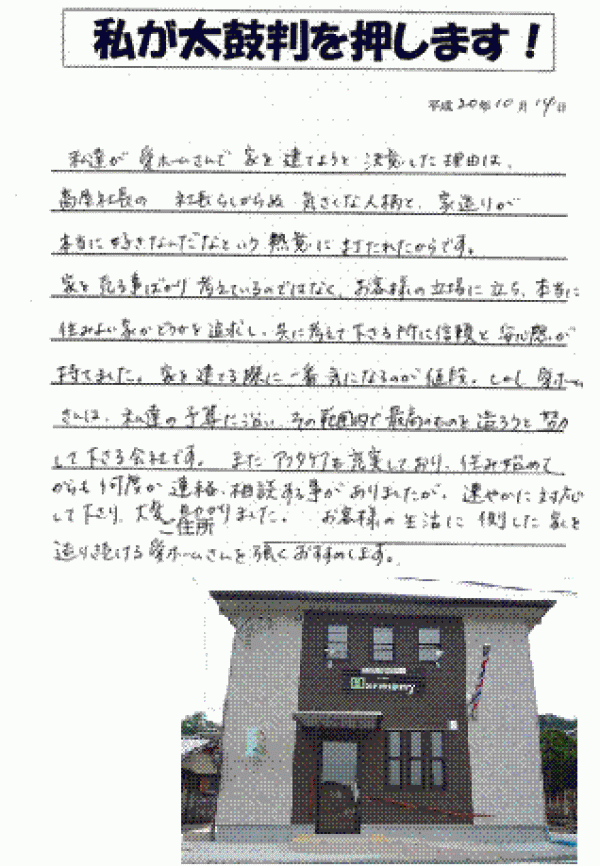 私が太鼓判を押します！
平成20年10月14日
私達が愛ホームさんで家を建てようと決意した理由は、
高原社長の 社長らしからぬ 気さくな人柄と、家造りが
本当に好きなんだなという熱意に打たれたからです。
家を売る事ばかり考えているのではなく、お客様の立場に立ち、本当に
住みよい家かどうかを追求し、共に考えて下さる所に信頼と安心感が
持てました。家を建てる際に一番気になるのが値段。しかし愛ホーム
さんは、私達の予算に沿い、その範囲内で最高のものを造ろうと努力
して下さる会社です。またアフタケアも充実しており、住み始めて
からも何度か連絡、相談する事がありましたが、速やかに対応
して下さり、大変助かりました。お客様の生活に側した家を
ご住所
造り続ける愛ホームさんを強くおすすめします。
Harmony